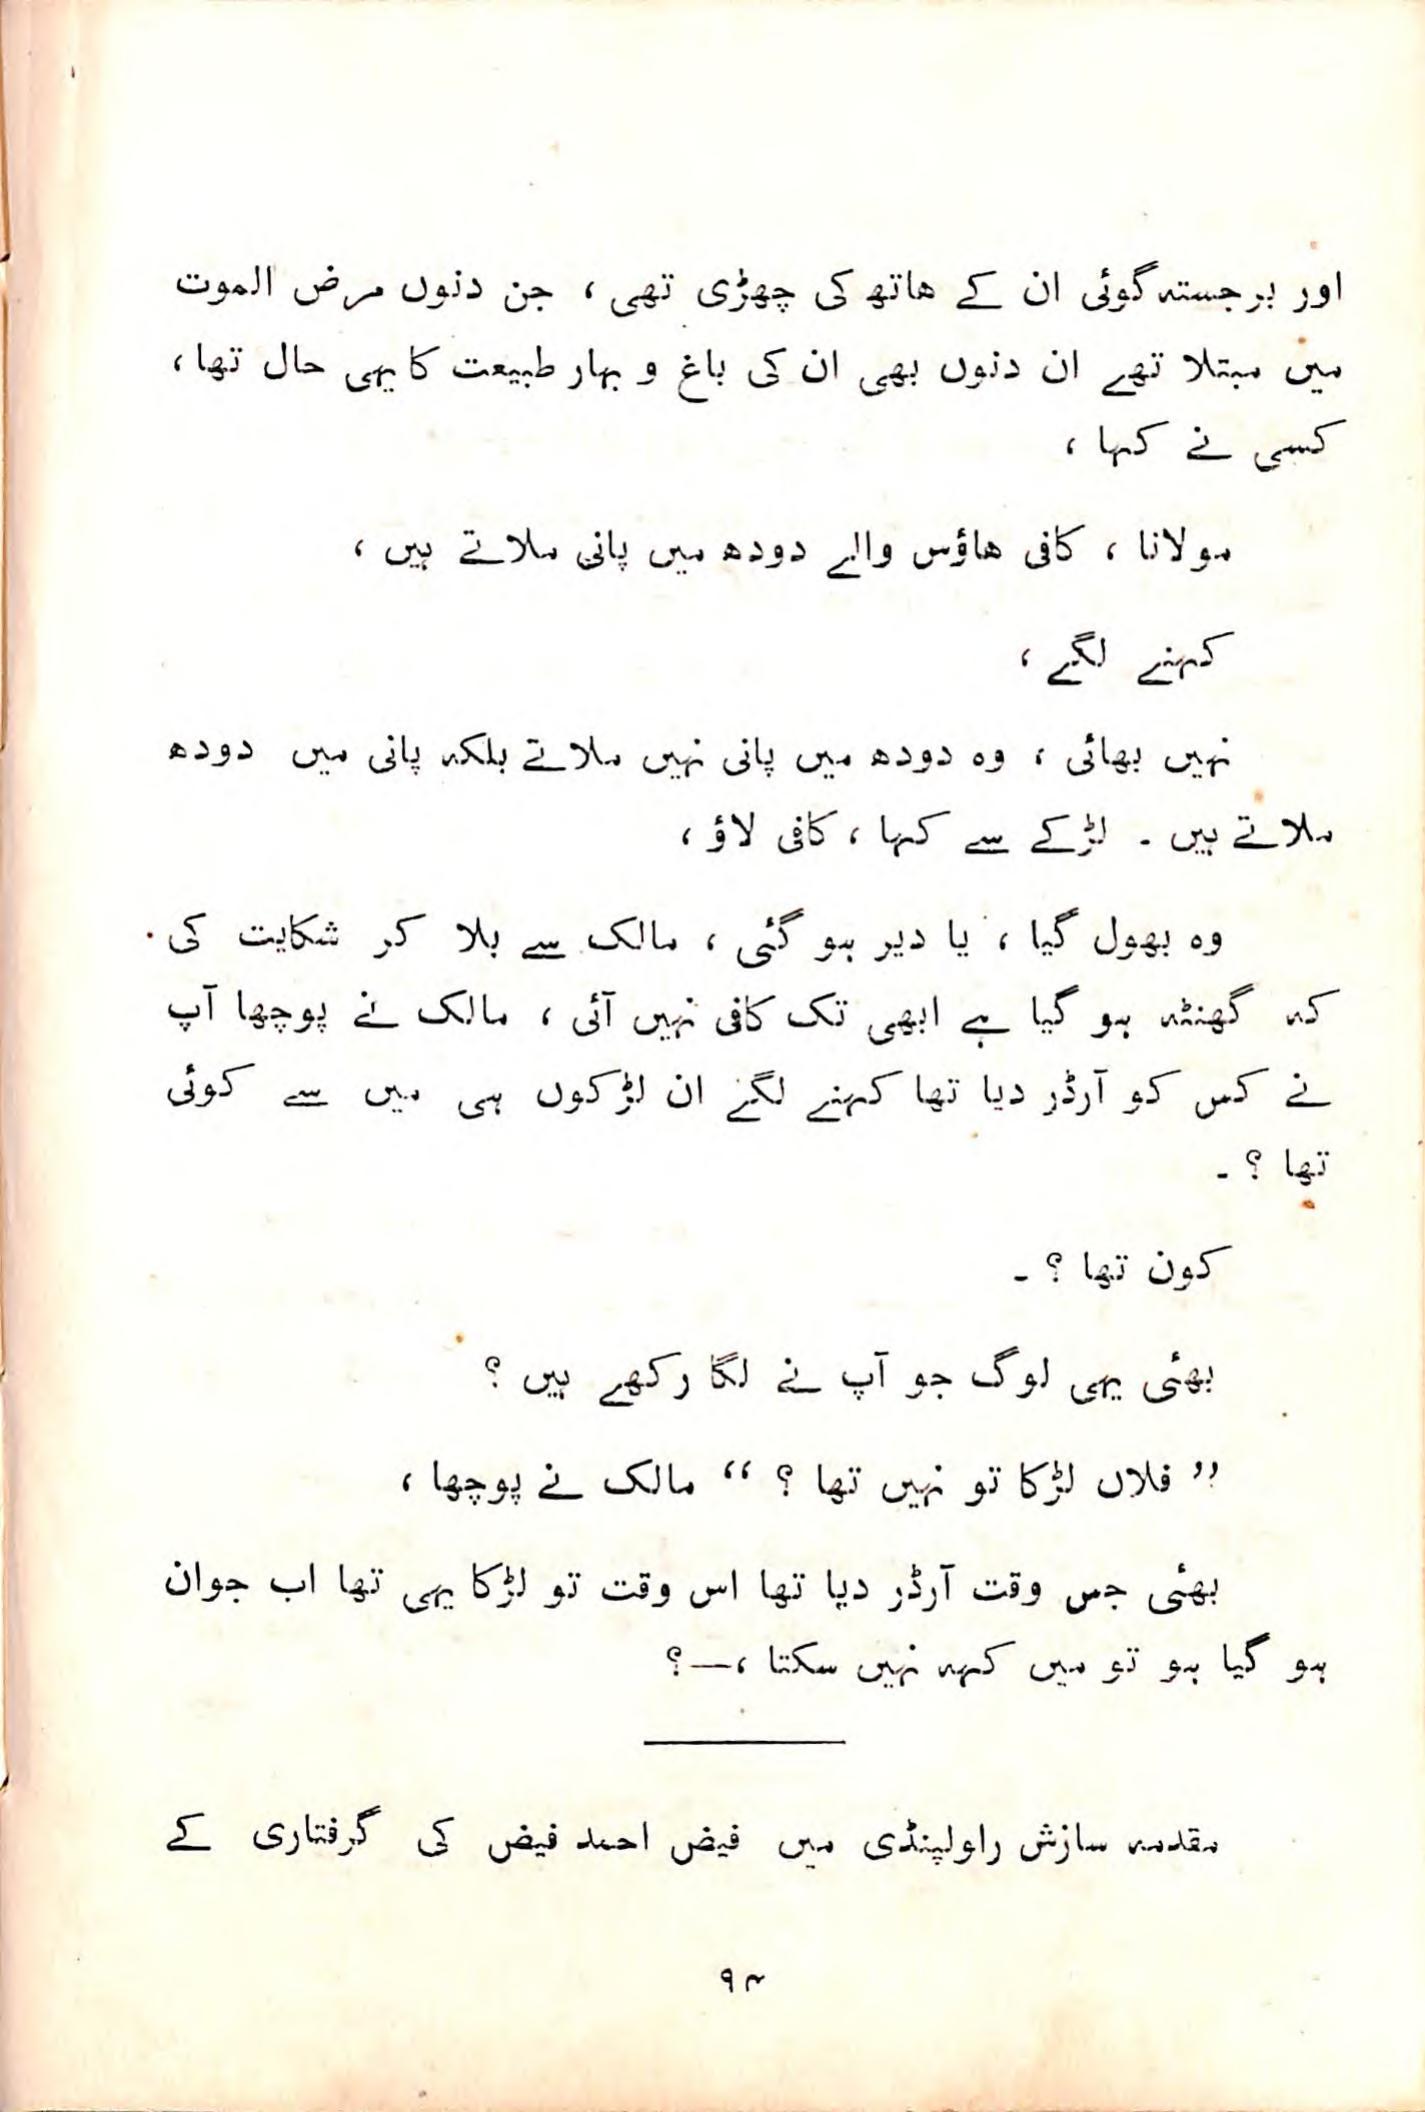 اور برجستہ گوئی ان کے ھاتھ کی چھڑی تھی ، جن دنوں مرض الموت
میں مبتلا تھے ان دنوں بھی ان کی باغ و بہار طبیعت کا یہی حال تھا ،
کسی نے کہا ،
مولانا ، کافی ھاؤس والے دودھ میں پانی ملاتے ہیں ،
کہنے لگے ،
نہیں بھائی ، وہ دودھ میں پانی نہیں ملاتے بلکہ پانی میں دودھ
ملاتے ہیں ۔ لڑکے سے کہا ، کافی لاؤ ،
وہ بھول گیا ، یا دیر ہو گئی ، مالک سے بلا کر شکایت کی
کہ گھنٹہ ہو گیا ہے ابھی تک کافی نہیں آئی ، مالک نے پوچھا آپ
نے کس کو آرڈر دیا تھا کہنے لگے ان لڑکوں ہی میں سے کوئی
تھا ؟ ۔
کون تھا ؟ ۔
بھئی یہی لوگ جو آپ نے لگا رکھے ہیں ؟
” فلاں لڑکا تو نہیں تھا ؟ “ مالک نے پوچھا ،
بھئی جس وقت آرڈر دیا تھا اس وقت تو لڑکا یہی تھا اب جوان
ہو گیا ہو تو میں کہہ نہیں سکتا ،—؟
مقدمہ سازش راولپنڈی میں فیض احمد فیض کی گرفتاری کے
۹۴